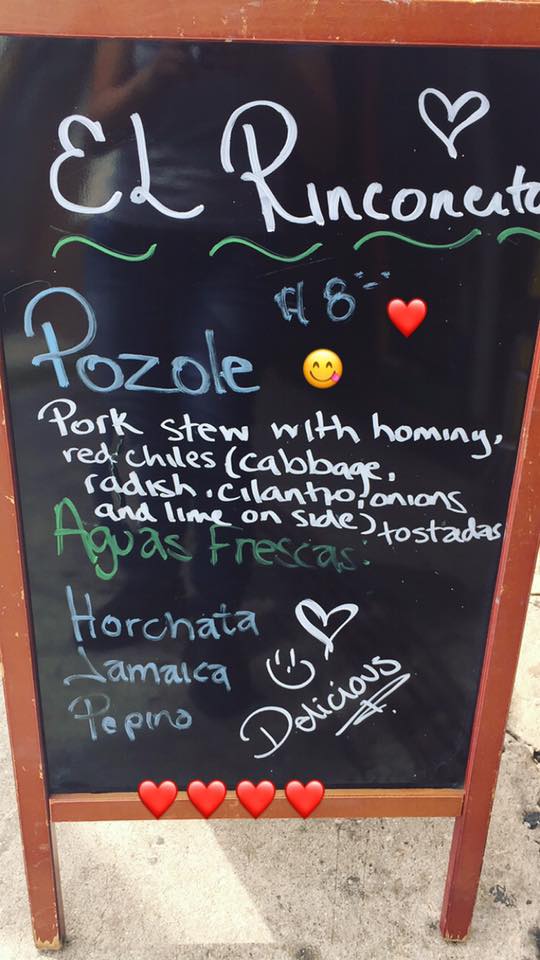 EL Rinconcito
$18
Pozole
Pork stew with hominy,
red chiles (cabbage,
radish, cilantro, onions
and lime on side) tostadas
Aguas Frescas:
Horchata
Jamaica
Pepino
Delicious